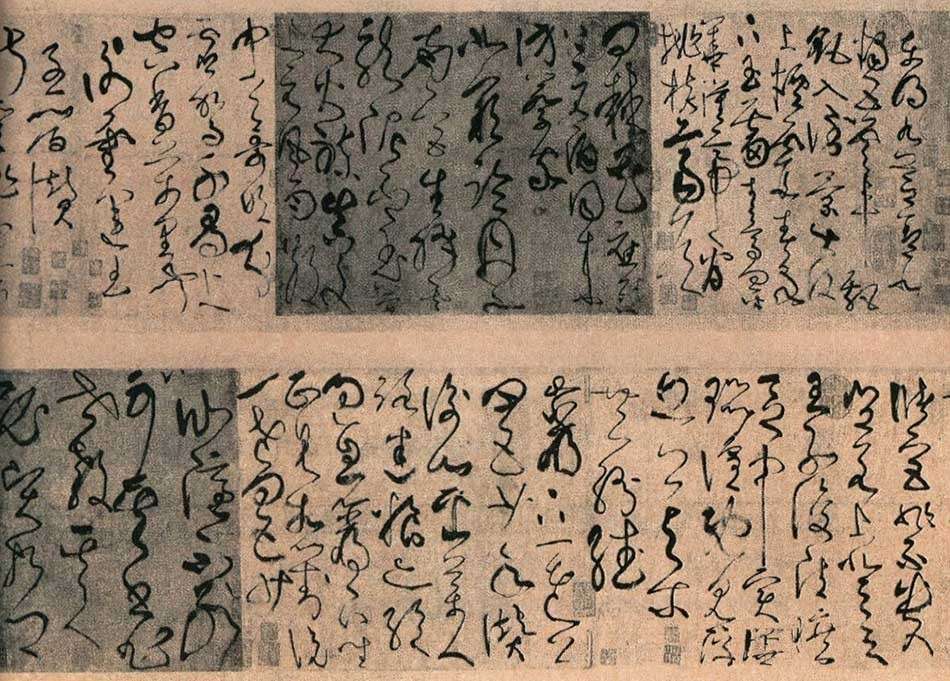 東明九芝蓋北
燭五雲車飄
飖入倒景出沒
上煙霞春泉
下玉霤青鳥向金
華漢帝看
桃核齊侯
問棘花應逐
上元酒同來
訪蔡家
北闕臨丹水
南宮生絳雲
龍泥印玉簡
大火練真文
上元風雨散
中天哥吹分
虛駕千尋上
空香萬里聞
謝靈運王
子晉讚
儲宮非不貴豈
若上登天
王子復清曠
區中實譁囂
喧既見浮
丘公與爾
共紛繙
巖下一老公
四五少年讚
衡山採藥人
路迷糧亦絕
過息巖下坐
正見相對說
一老四五少
仙隱不可別
其書非世教
其人必賢哲